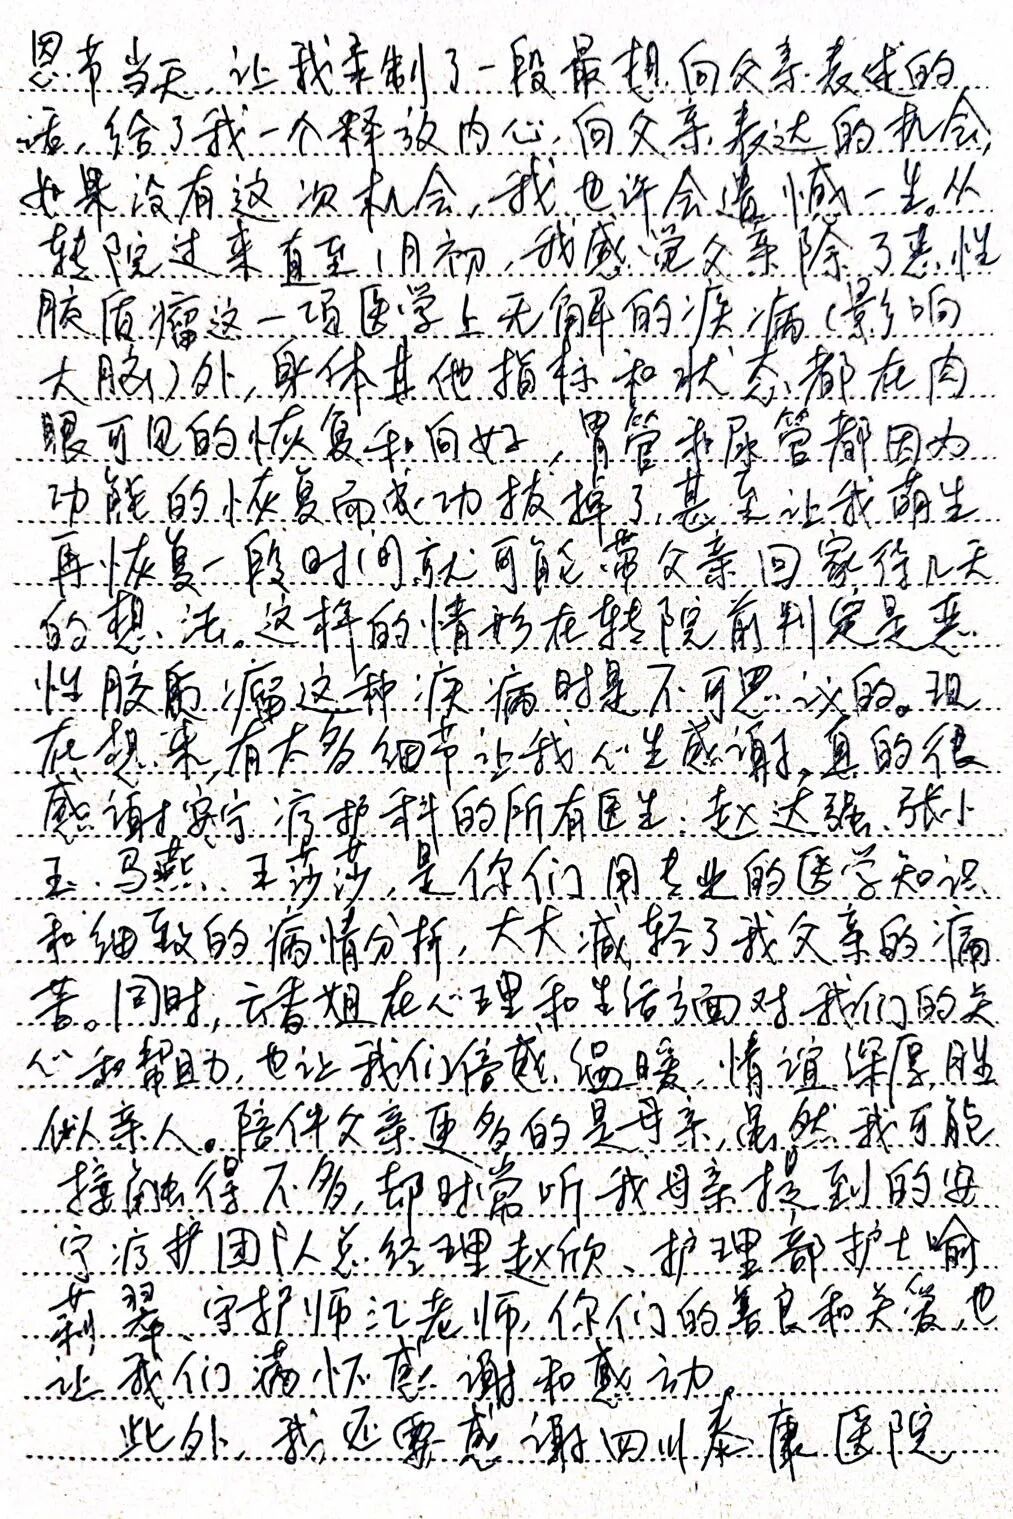 恩节当天，让我录制了一段最想向父亲表述的
话，给了我一个释放内心，向父亲表达的机会，
如果没有这次机会，我也许会遗憾一生。从
转院过来直至1月初，我感觉父亲除了恶性
胶质瘤这一项医学上无解的疾病（影响
大脑）外，身体其他指标和状态都在肉
眼可见的恢复和向好，胃管和尿管都因为
功能的恢复而成功拔掉了，甚至让我萌生
再恢复一段时间就可能带父亲回家待几天
的想法。这样的情形在转院前判定是恶
性胶质瘤这种疾病时是不可思议的。现
在想来，有太多细节让我心生感谢，真的很
感谢安宁疗护科的所有医生：赵达强、张小
玉、马燕、王莎莎，是你们用专业的医学知识
和细致的病情分析，大大减轻了我父亲的痛
苦。同时，云香姐在心理和生活方面对我们的关
心和帮助，也让我们倍感温暖，情谊深厚，胜
似亲人。陪伴父亲更多的是母亲，虽然我可能
接触得不多，却时常听我母亲提到的安
宁疗护团队总经理赵欣、护理部护士喻
莉翠、守护师江老师，你们的善良和关爱，也
让我们满怀感谢和感动。
此外，我还要感谢四川泰康医院